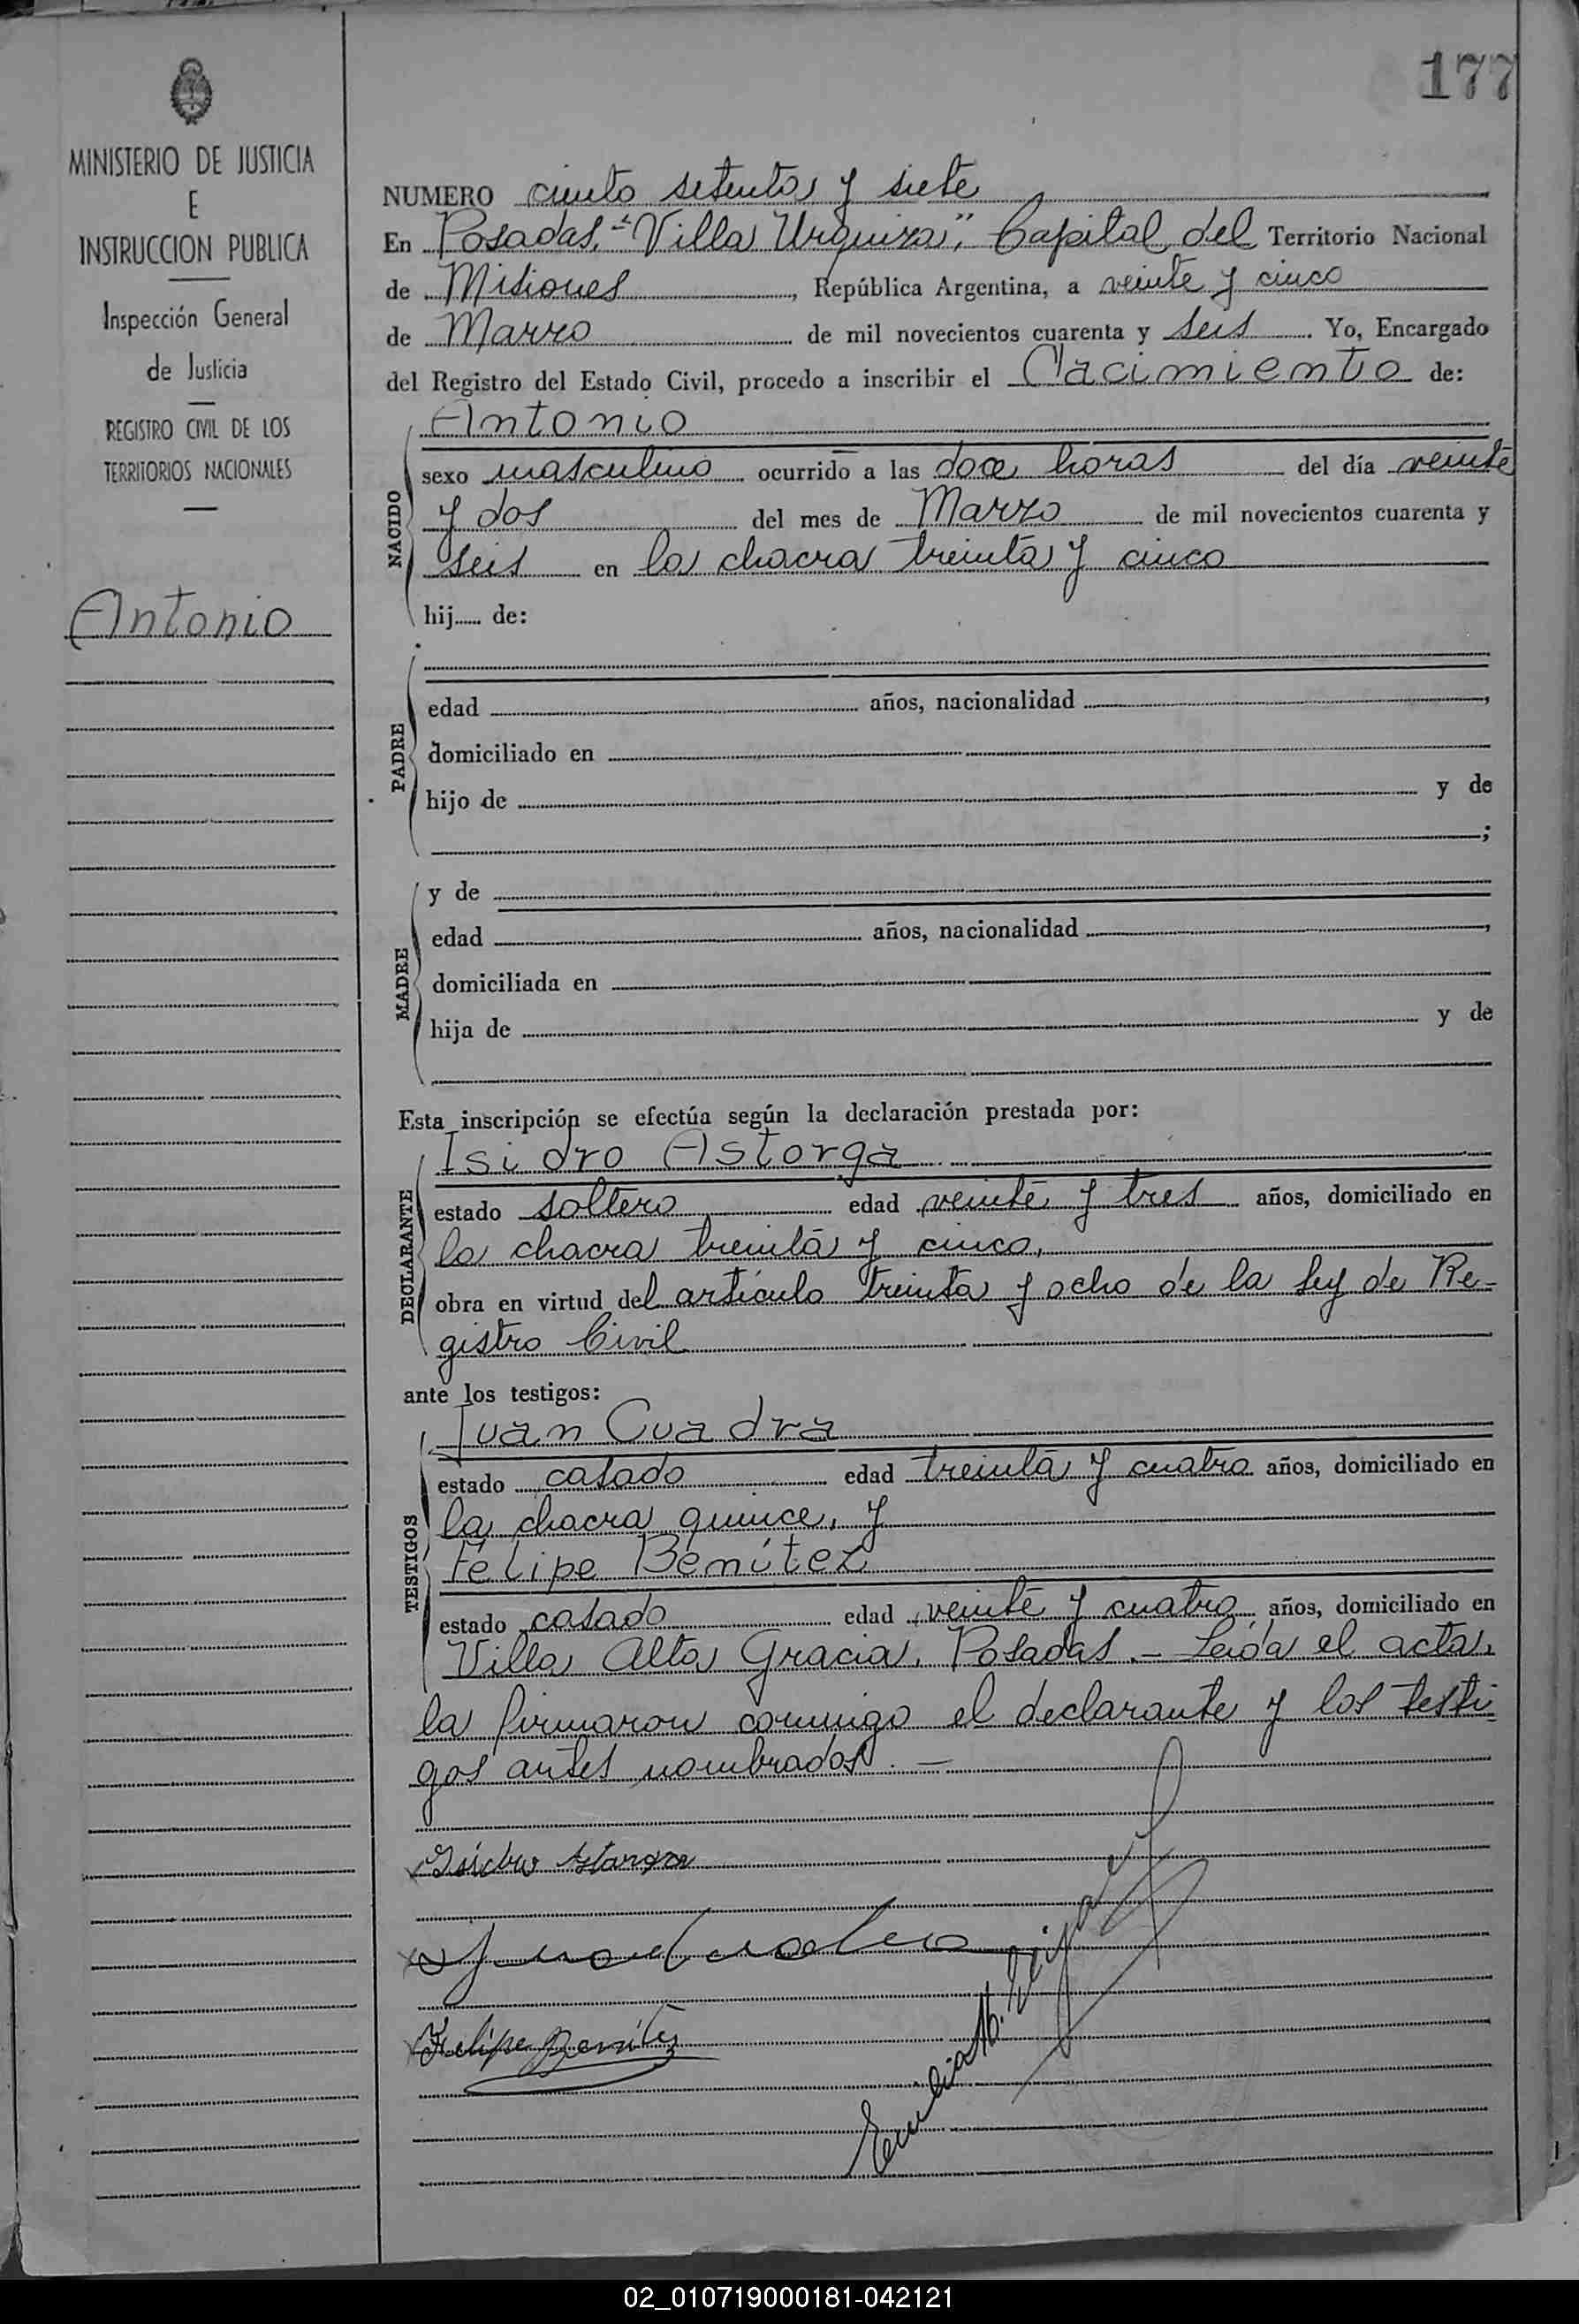 177
MINISTERIO DE JUSTICIA
E
INSTRUCCION PUBLICA
Inspección General
de Justicia
REGISTRO CIVIL DE LOS
TERRITORIOS NACIONALES
Antonio
NUMERO ciento setenta y siete
En Posadas, "Villa Urquiza", Capital del Territorio Nacional
de Misiones, República Argentina, a veinte y cinco
de Marzo de mil novecientos cuarenta y seis. Yo, Encargado
del Registro del Estado Civil, procedo a inscribir el Nacimiento de:
Antonio
NACIDO
sexo masculino ocurrido a las doce horas del día veinte
y dos del mes de Marzo de mil novecientos cuarenta y
seis en la chacra treinta y cinco
hij de:
PADRE
edad años, nacionalidad ,
domiciliado en
hijo de y de
;
MADRE
y de
edad años, nacionalidad ,
domiciliada en
hija de y de
Esta inscripción se efectúa según la declaración prestada por:
DECLARANTE
Isidro Astorga
estado soltero edad veinte y tres años, domiciliado en
la chacra treinta y cinco,
obra en virtud del artículo treinta y ocho de la Ley de Re-
gistro Civil
ante los testigos:
TESTIGOS
Juan Cuadra
estado casado edad treinta y cuatro años, domiciliado en
la chacra quince, y
Felipe Benítez
estado casado edad veinte y cuatro años, domiciliado en
Villa Alta Gracia, Posadas.- Leída el acta,
la firmaron conmigo el declarante y los testi-
gos antes nombrados.-
Isidro Astorga
Felipe Benítez
02_010719000181-042121